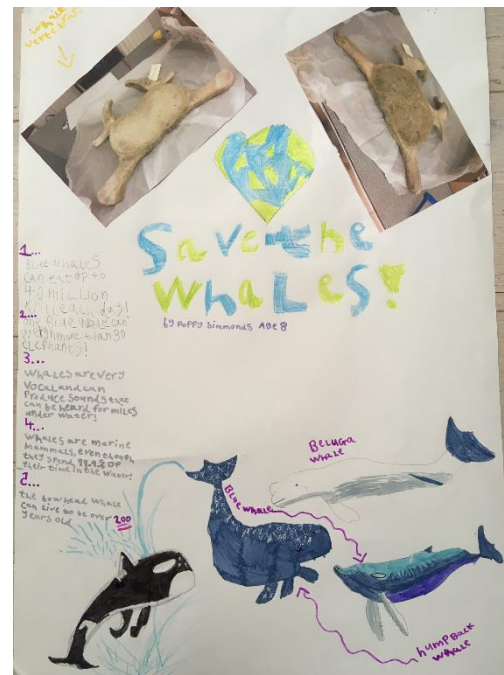 whale
vertebrae
Save the
Whales!
by Poppy Simmonds Age 8
1...
Blue whales
can eat up to
40 million
krill each day!
2...
the Blue whale can
weigh more than 30
elephants!
3...
Whales are very
vocal and can
produce sounds that
can be heard for miles
under water!
4...
Whales are marine
mammals, even though
they spend 99.9% of
their time in the water!
5...
the bowhead whale
can live to be over 200
years old
Beluga
whale
Blue whale
humpback
whale